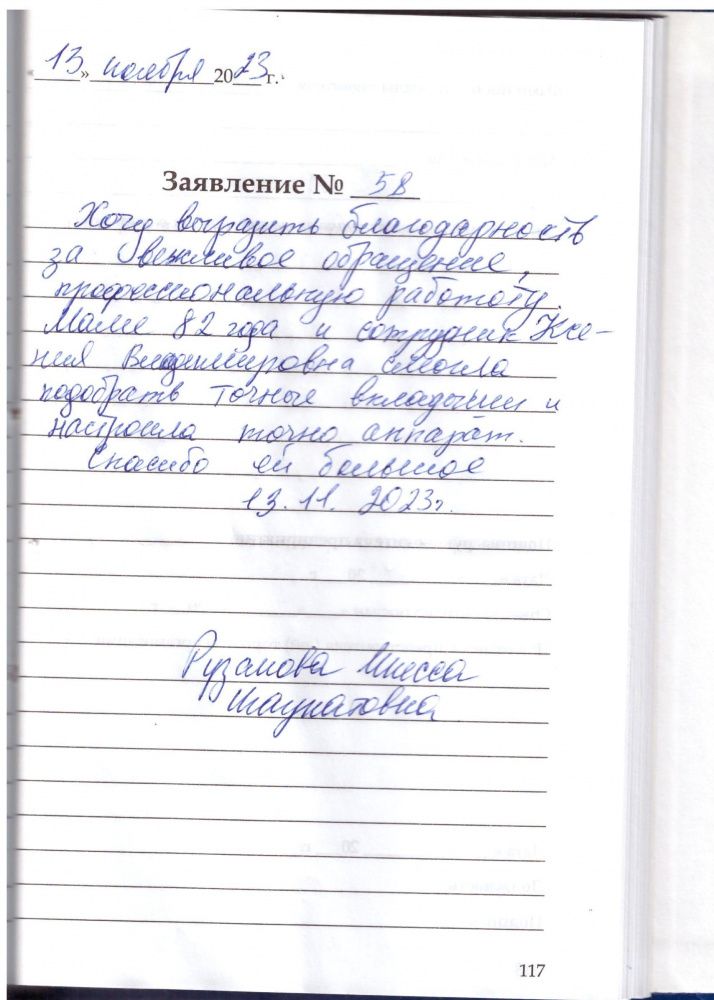 13 » ноября 2023 г.
Заявление № 58
Хочу выразить благодарность
за вежливое обращение,
профессиональную работоту.
Маме 82 года и сотрудник Ксе-
ния Владимировна смогла
подобрать точные вкладыши и
настроила точно аппарат.
Спасибо ей большое
13.11.2023г.
Рузанова
117